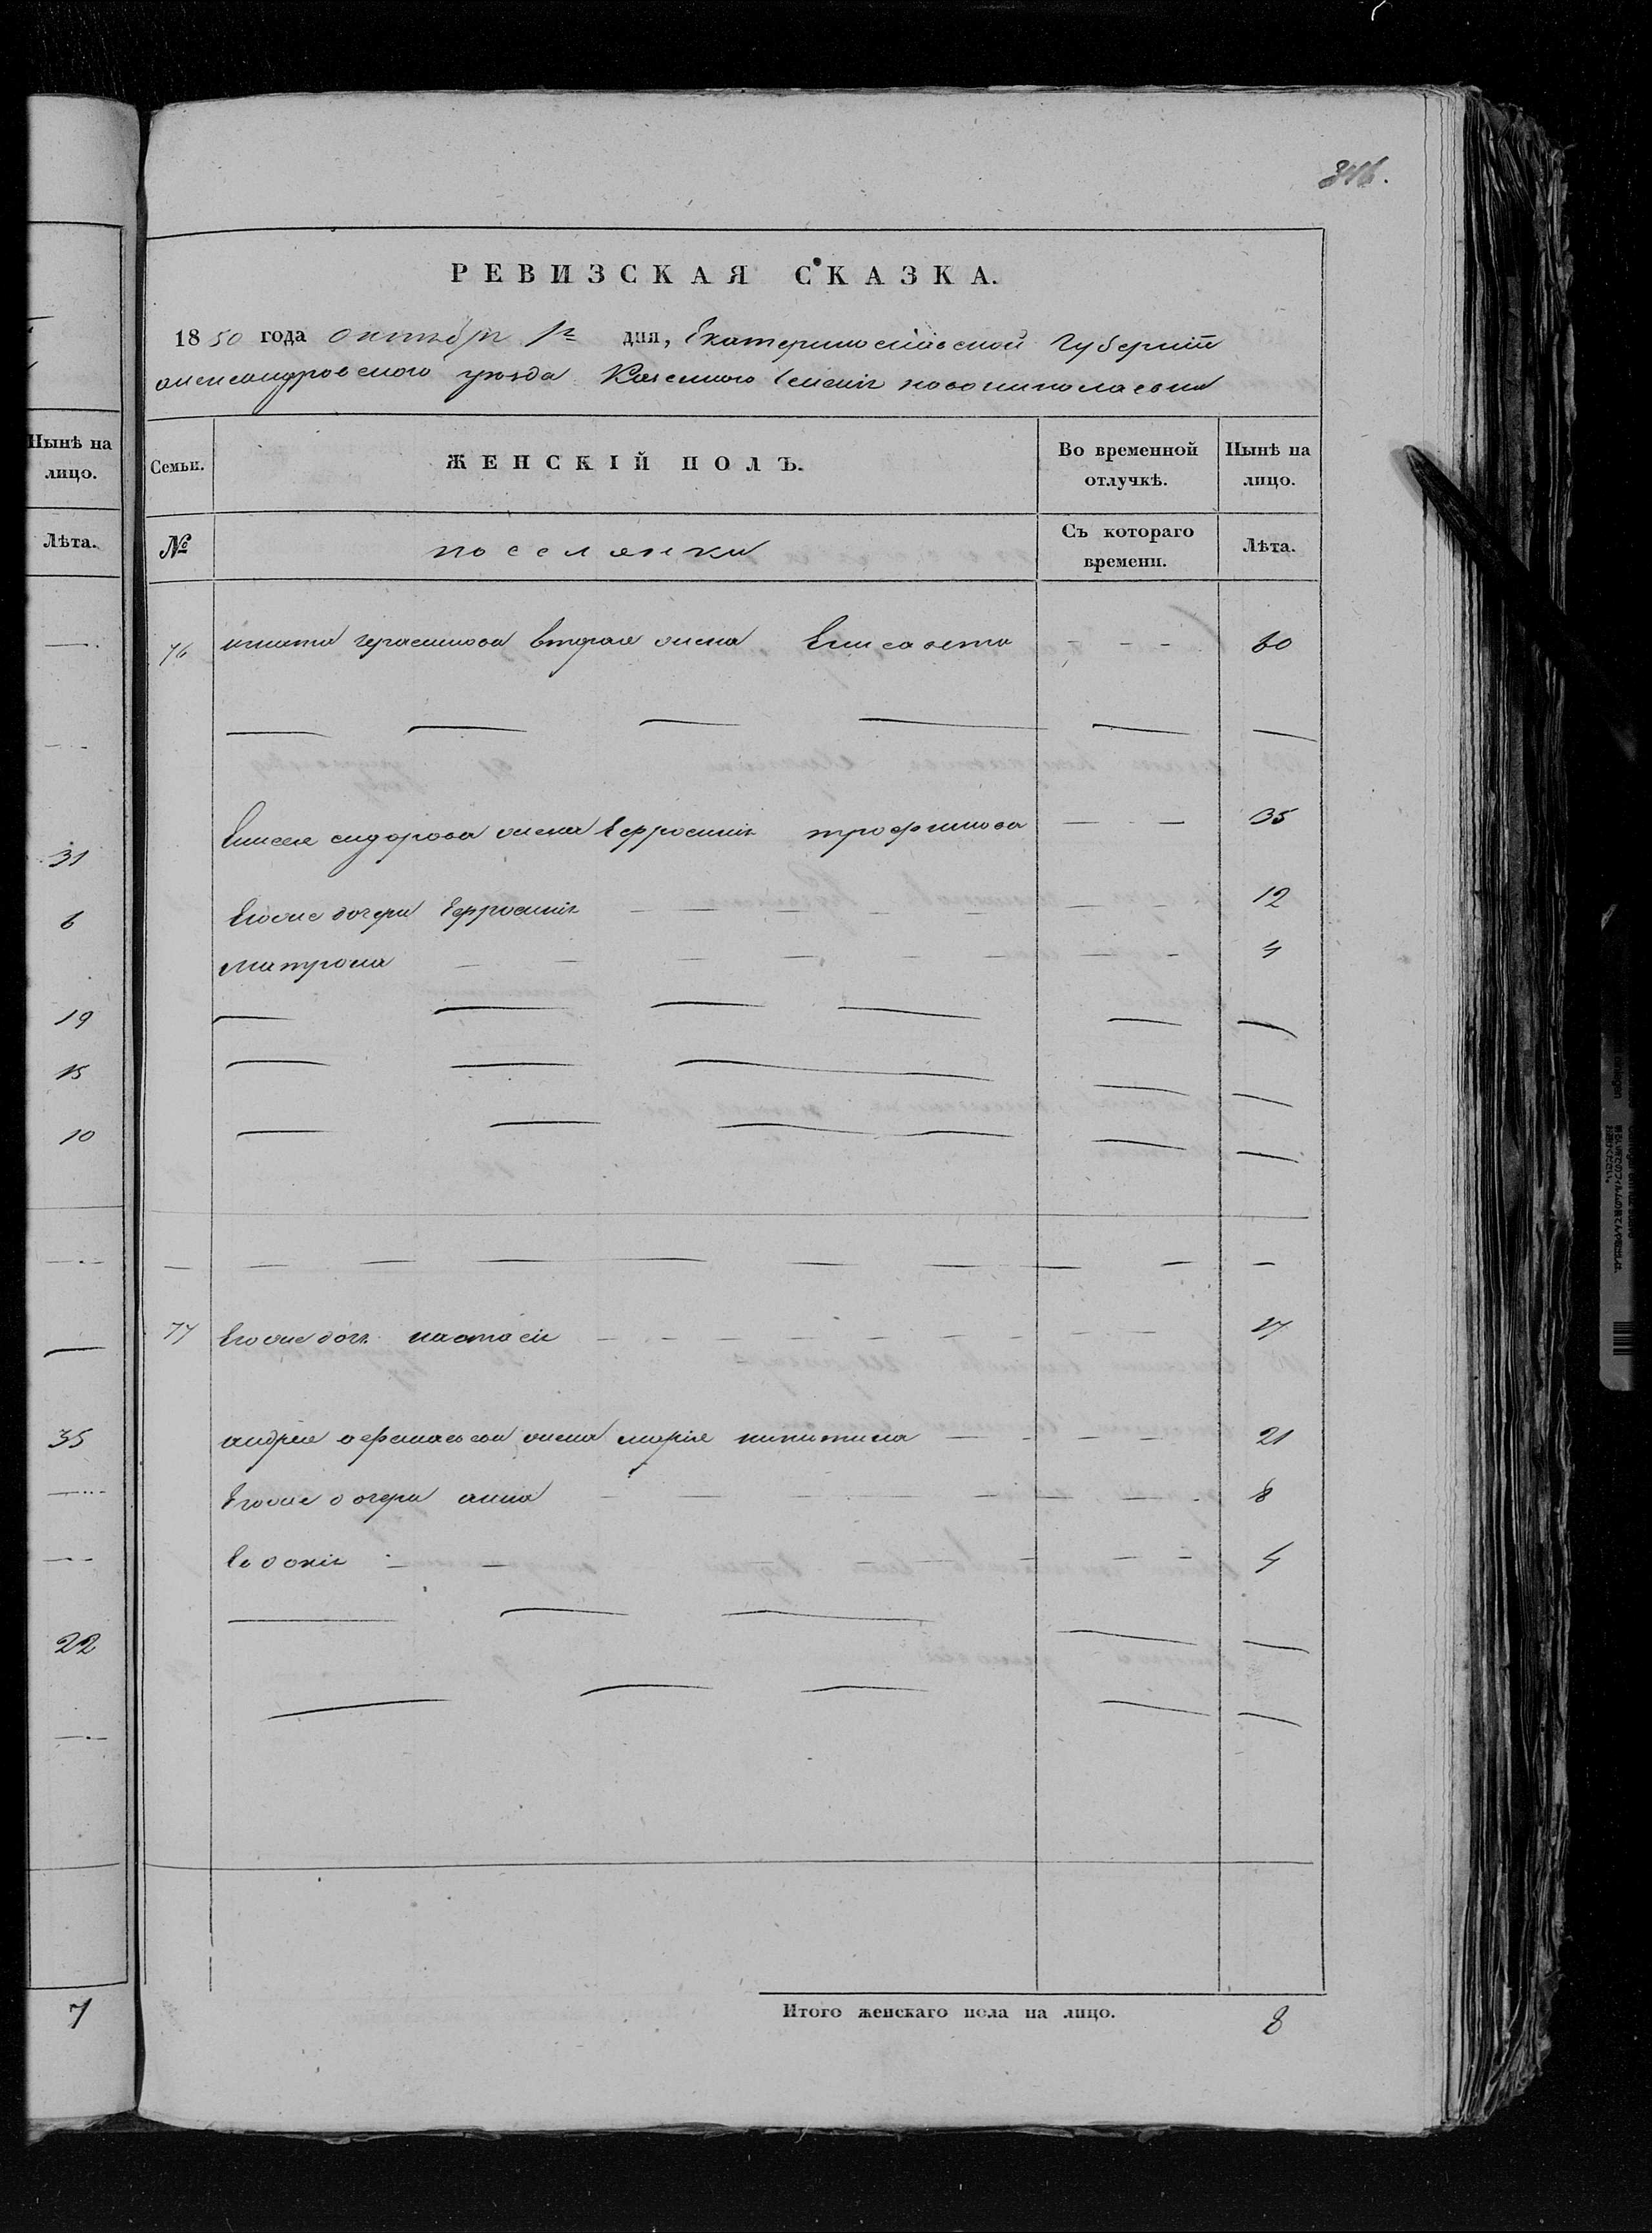 316.
РЕВИЗСКАЯ СКАЗКА.
1850 года октября 1го дня, Екатеринославской Губернии
александровского уезда Казенного Селения новониколаевки
Нынѣ на лицо.
Семьи.
ЖЕНСКІЙ ПОЛЪ.
Во временной отлучкѣ.
Нынѣ на лицо.
Лѣта.
№
поселянки
Съ котораго времени.
Лѣта.
76 игната герасимова вторая жена Елисавета 60
31
Елисея сидорова жена Ефросиния трофимова 35
6
Егоже дочери Ефросиния 12
матрона 4
19
15
10
77 Егоже дочь настасия 17
35
андрея афанасьева жена мария никитина 21
Егоже дочери анна 8
Евдокия 4
22
7
Итого женскаго пола на лицо. 8